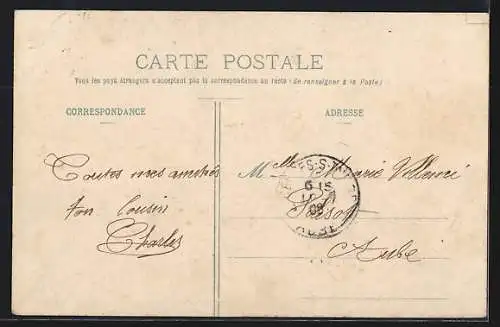 CARTE POSTALE
Tous les pays étrangers n'acceptent pas la correspondance au recto (Se renseigner à la Poste)
CORRESPONDANCE
ADRESSE
Toutes mes amitiés
ton Cousin
Charles
Melle Marie
6 15
09
AUBE
Aube